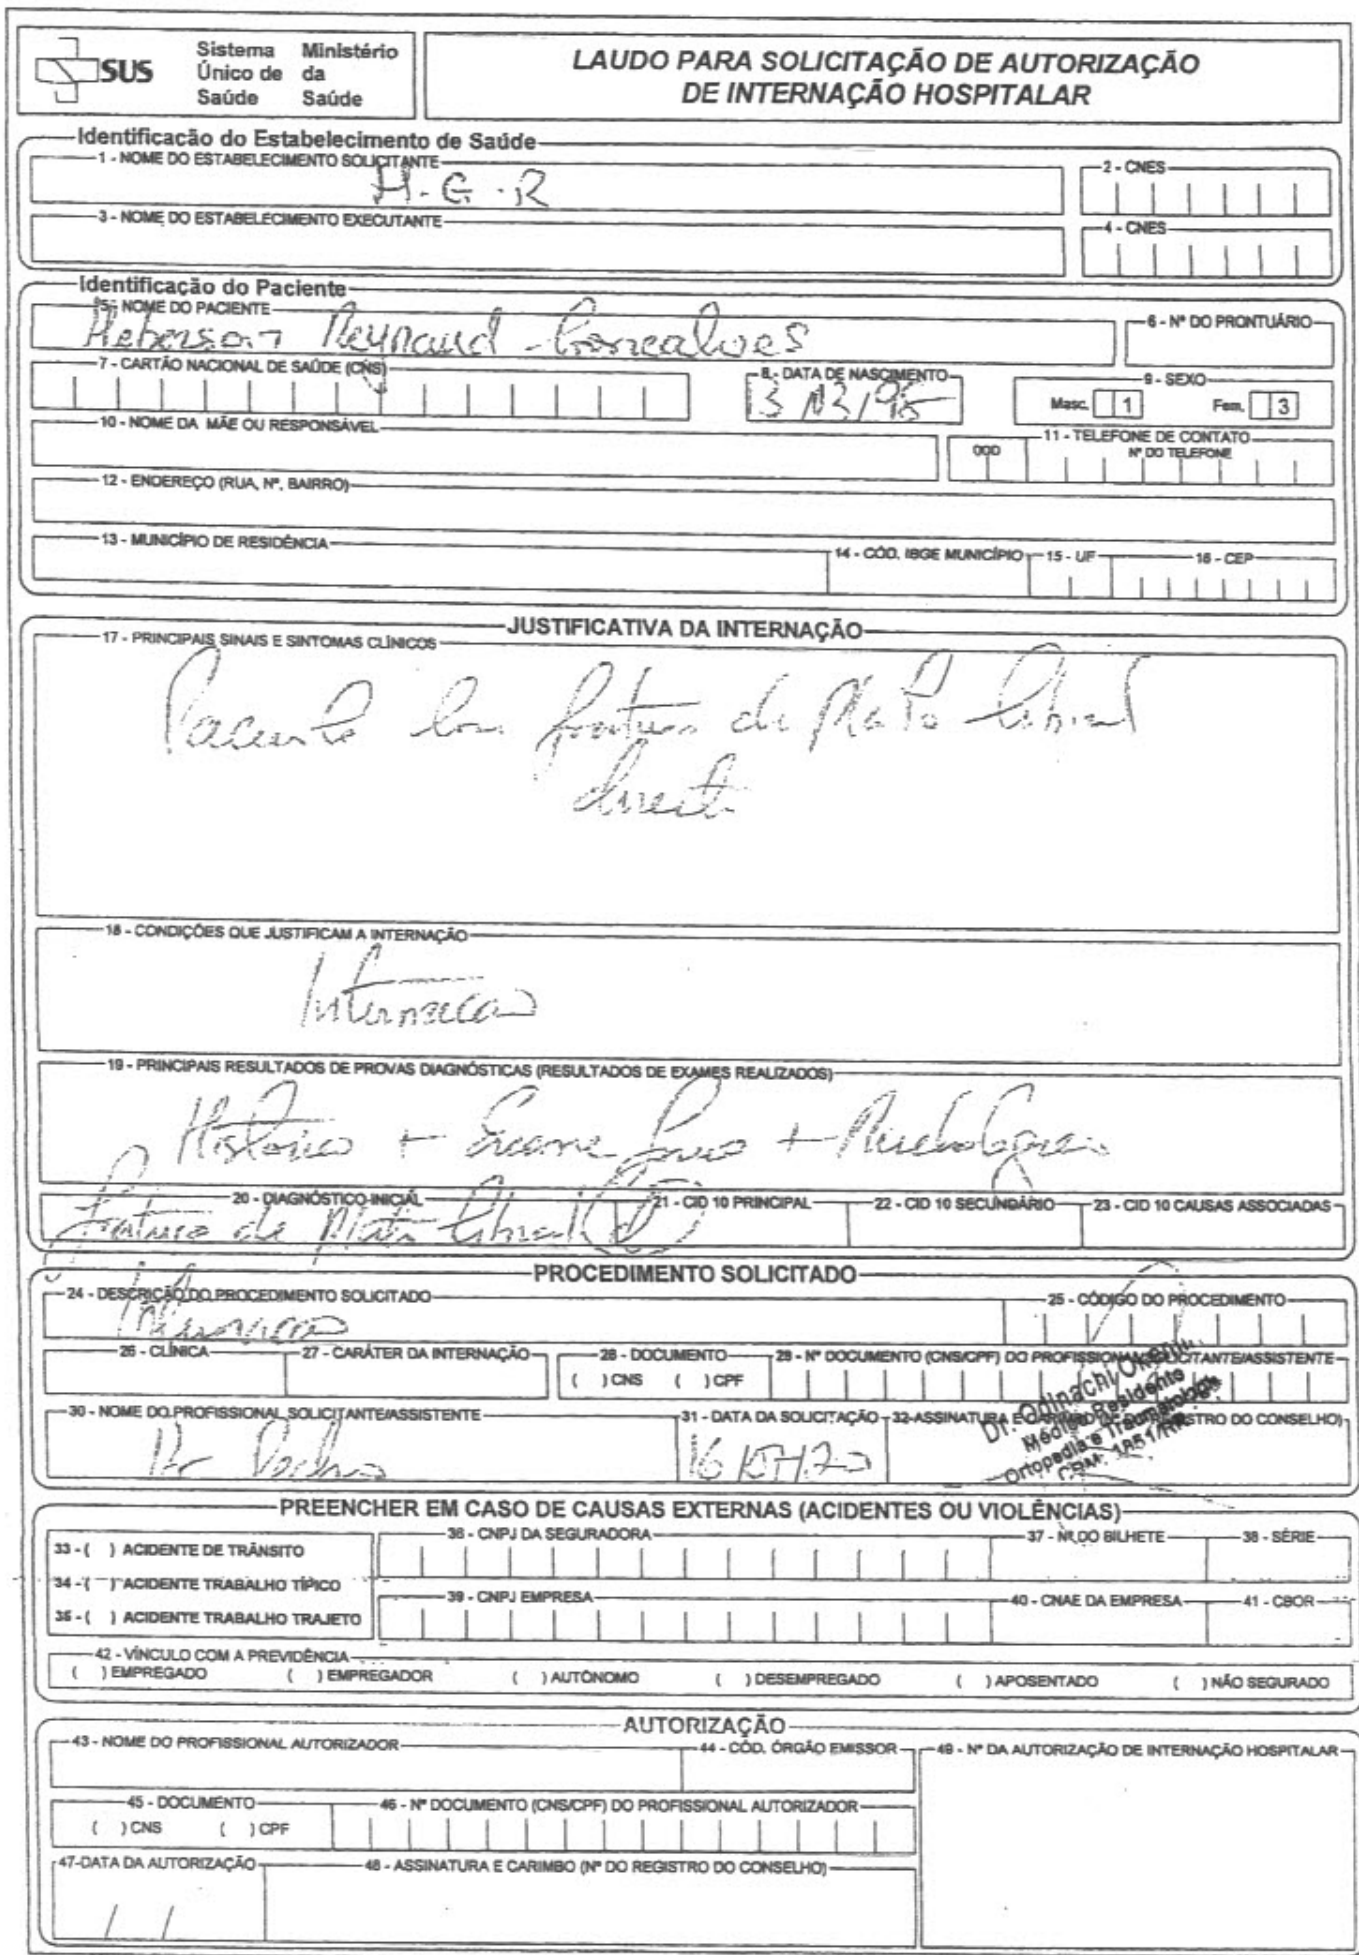 SUS
Sistema Único de Saúde
Ministério da Saúde
LAUDO PARA SOLICITAÇÃO DE AUTORIZAÇÃO
DE INTERNAÇÃO HOSPITALAR
Identificação do Estabelecimento de Saúde
1 - NOME DO ESTABELECIMENTO SOLICITANTE
2 - CNES
H.G.R
3 - NOME DO ESTABELECIMENTO EXECUTANTE
4 - CNES
Identificação do Paciente
5 - NOME DO PACIENTE
6 - Nº DO PRONTUÁRIO
Heberson Reynaud Goncalves
7 - CARTÃO NACIONAL DE SAÚDE (CNS)
8 - DATA DE NASCIMENTO
9 - SEXO
Masc. 1 Fem. 3
10 - NOME DA MÃE OU RESPONSÁVEL
11 - TELEFONE DE CONTATO
DDD Nº DO TELEFONE
12 - ENDEREÇO (RUA, Nº, BAIRRO)
13 - MUNICÍPIO DE RESIDÊNCIA
14 - CÓD. IBGE MUNICÍPIO
15 - UF
16 - CEP
JUSTIFICATIVA DA INTERNAÇÃO
17 - PRINCIPAIS SINAIS E SINTOMAS CLÍNICOS
Paciente com fratura de Plato tibial
direito
18 - CONDIÇÕES QUE JUSTIFICAM A INTERNAÇÃO
Internacao
19 - PRINCIPAIS RESULTADOS DE PROVAS DIAGNÓSTICAS (RESULTADOS DE EXAMES REALIZADOS)
Historico + Exame fisico +
20 - DIAGNÓSTICO INICIAL
21 - CID 10 PRINCIPAL
22 - CID 10 SECUNDÁRIO
23 - CID 10 CAUSAS ASSOCIADAS
fratura de Plato tibial (d)
PROCEDIMENTO SOLICITADO
24 - DESCRIÇÃO DO PROCEDIMENTO SOLICITADO
25 - CÓDIGO DO PROCEDIMENTO
Internacao
26 - CLÍNICA
27 - CARÁTER DA INTERNAÇÃO
28 - DOCUMENTO
( ) CNS ( ) CPF
29 - Nº DOCUMENTO (CNS/CPF) DO PROFISSIONAL SOLICITANTE/ASSISTENTE
30 - NOME DO PROFISSIONAL SOLICITANTE/ASSISTENTE
31 - DATA DA SOLICITAÇÃO
32-ASSINATURA E CARIMBO (Nº DO REGISTRO DO CONSELHO)
Dr
Dr. Odinachi
Médico Residente
Ortopedia e Traumatologia
CRM: 1851/RR
PREENCHER EM CASO DE CAUSAS EXTERNAS (ACIDENTES OU VIOLÊNCIAS)
33 - ( ) ACIDENTE DE TRÂNSITO
36 - CNPJ DA SEGURADORA
37 - Nº DO BILHETE
38 - SÉRIE
34 - ( ) ACIDENTE TRABALHO TÍPICO
39 - CNPJ EMPRESA
40 - CNAE DA EMPRESA
41 - CBOR
35 - ( ) ACIDENTE TRABALHO TRAJETO
42 - VÍNCULO COM A PREVIDÊNCIA
( ) EMPREGADO ( ) EMPREGADOR ( ) AUTÔNOMO ( ) DESEMPREGADO ( ) APOSENTADO ( ) NÃO SEGURADO
AUTORIZAÇÃO
43 - NOME DO PROFISSIONAL AUTORIZADOR
44 - CÓD. ÓRGÃO EMISSOR
49 - Nº DA AUTORIZAÇÃO DE INTERNAÇÃO HOSPITALAR
45 - DOCUMENTO
( ) CNS ( ) CPF
46 - Nº DOCUMENTO (CNS/CPF) DO PROFISSIONAL AUTORIZADOR
47-DATA DA AUTORIZAÇÃO
/ /
48 - ASSINATURA E CARIMBO (Nº DO REGISTRO DO CONSELHO)